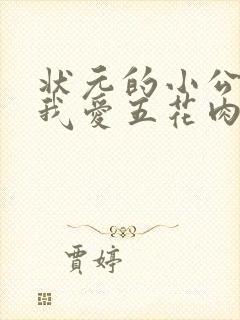 状元的小公
我爱五花肉
贾婷